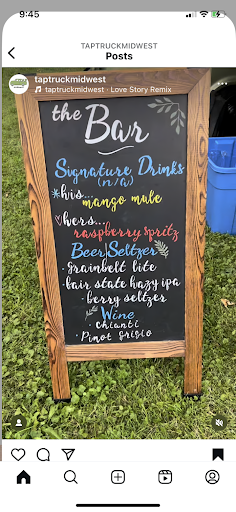 9:45
TAPTRUCKMIDWEST
Posts
taptruckmidwest
taptruckmidwest · Love Story Remix
the
Bar
Signature Drinks
(n/a)
*his...
mango mule
hers...
raspberry spritz
Beer|Seltzer
· Grainbelt lite
· fair state hazy ipa
· berry seltzer
Wine
· Chianti
· Pinot Grisio
TAPTRUCKMIDWEST